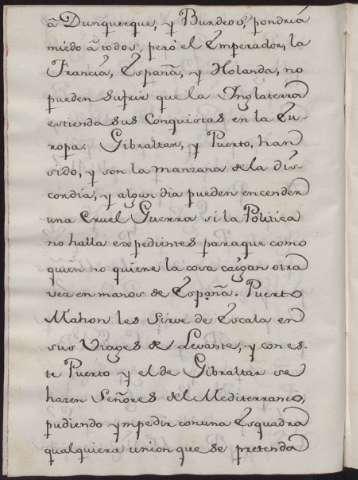 â Dunquerque, y Burdeos, pondria
miedo â todos, pero el Emperador, la
Francia, España, y Holanda, no
pueden sufrir que la Ynglaterra
estienda sus Conquistas en la Eu-
ropa. Gibraltar, y Puerto, han
sido, y son la manzana de la dis-
cordia, y algun dia pueden encender
una Cruel Guerra si la Politica
no halla expedientes paraque como
quien no quiere la cosa caygan otra
vez en manos de España. Puerto
Mahon les sirve de Escala en
sus Viages de Levante, y con es-
te Puerto y el de Gibraltar se
hazen Señores del Mediterraneo,
pudiendo ympedir conuna Esquadra
qualquiera union que se pretenda